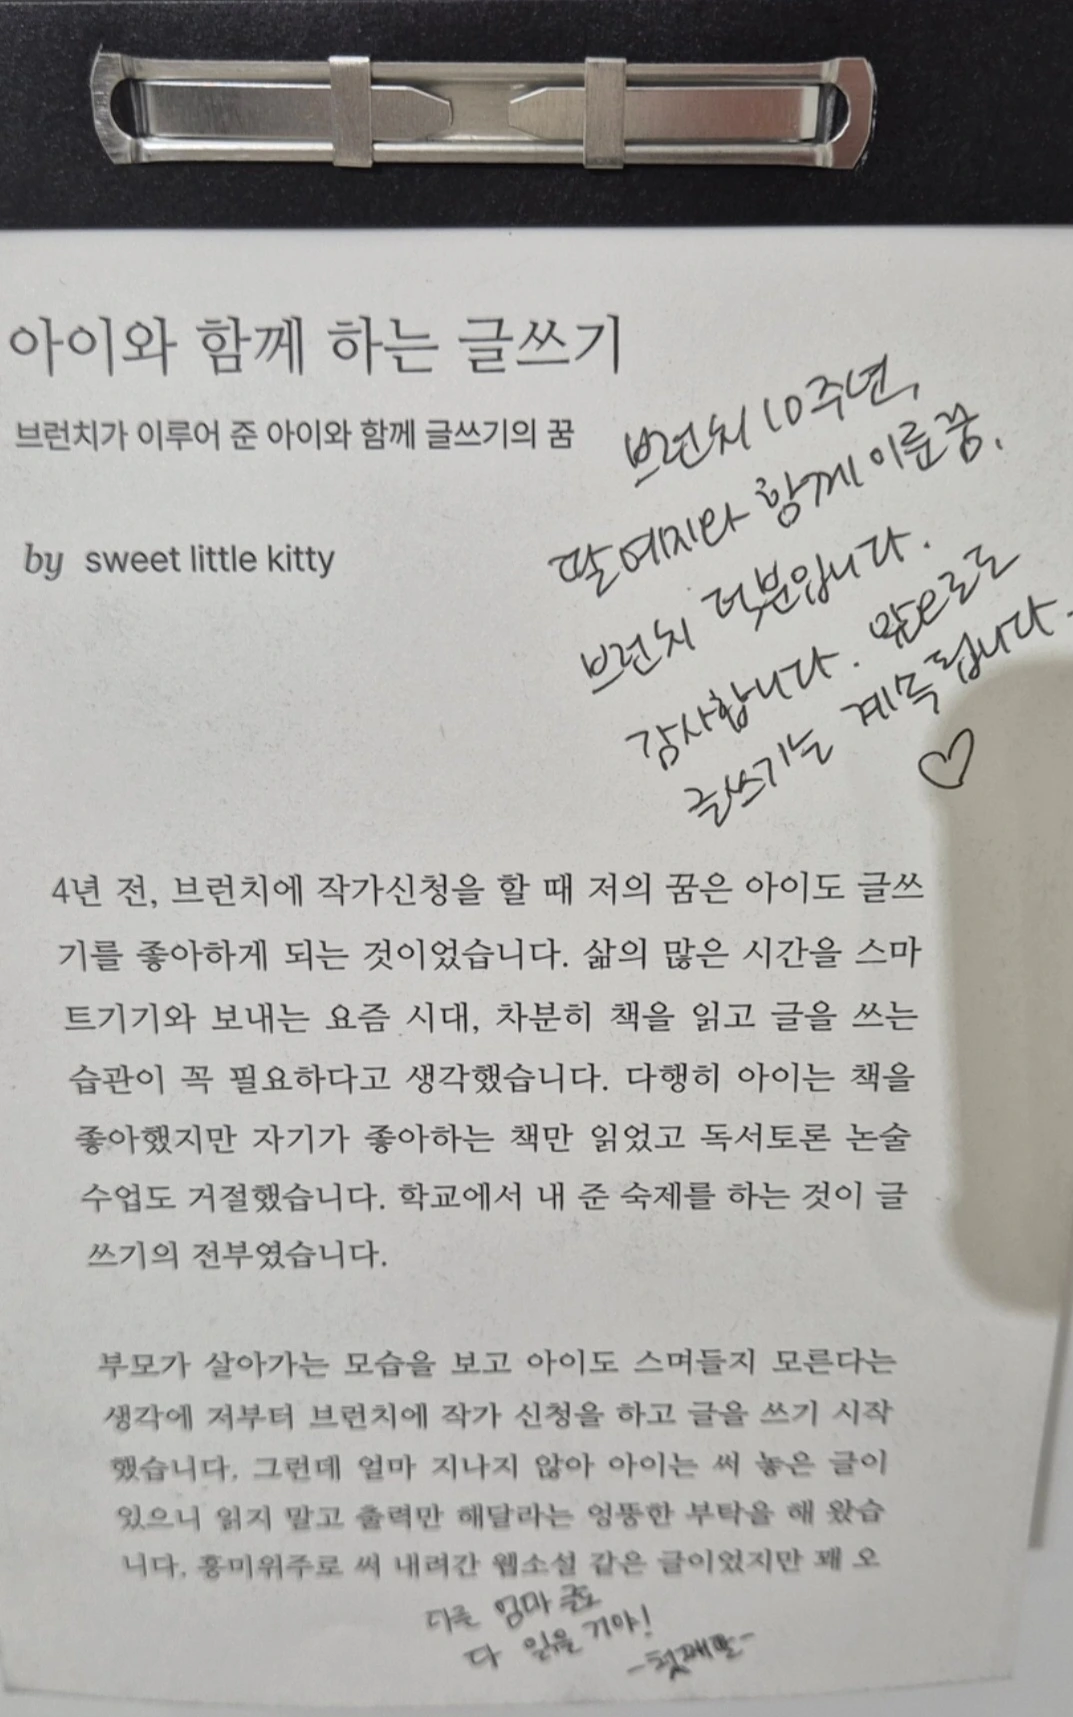 아이와 함께 하는 글쓰기
브런치가 이루어 준 아이와 함께 글쓰기의 꿈
by sweet little kitty
브런치 10주년,
딸 예지와 함께 이룬 꿈,
브런치 덕분입니다.
감사합니다. 앞으로도
글쓰기는 계속 됩니다-
♡
4년 전, 브런치에 작가신청을 할 때 저의 꿈은 아이도 글쓰
기를 좋아하게 되는 것이었습니다. 삶의 많은 시간을 스마
트기기와 보내는 요즘 시대, 차분히 책을 읽고 글을 쓰는
습관이 꼭 필요하다고 생각했습니다. 다행히 아이는 책을
좋아했지만 자기가 좋아하는 책만 읽었고 독서토론 논술
수업도 거절했습니다. 학교에서 내 준 숙제를 하는 것이 글
쓰기의 전부였습니다.
부모가 살아가는 모습을 보고 아이도 스며들지 모른다는
생각에 저부터 브런치에 작가 신청을 하고 글을 쓰기 시작
했습니다. 그런데 얼마 지나지 않아 아이는 써 놓은 글이
있으니 읽지 말고 출력만 해달라는 엉뚱한 부탁을 해 왔습
니다. 흥미위주로 써 내려간 웹소설 같은 글이었지만 꽤 오
다른 엄마 글도
다 읽을 거야!
-첫째딸-